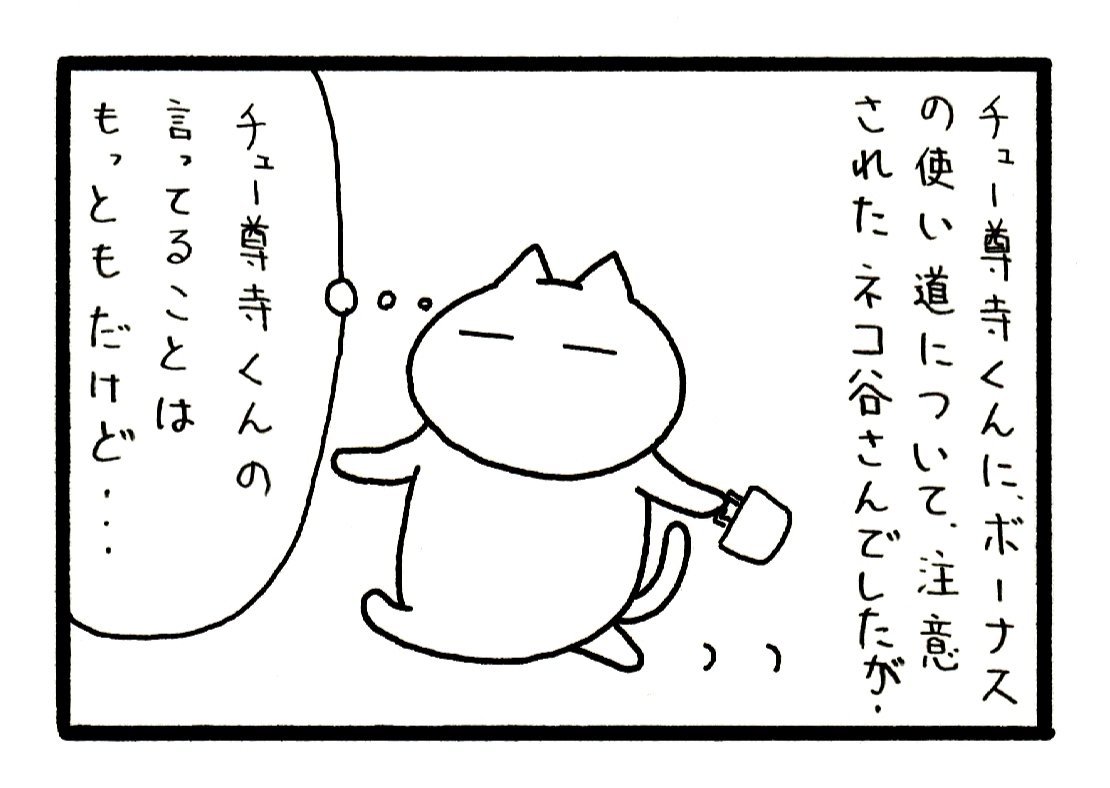 チュー尊寺くんに、ボーナス
の使い道について、注意
された ネコ谷さんでしたが・
チュー尊寺くんの
言ってることは
もっともだけど・・・